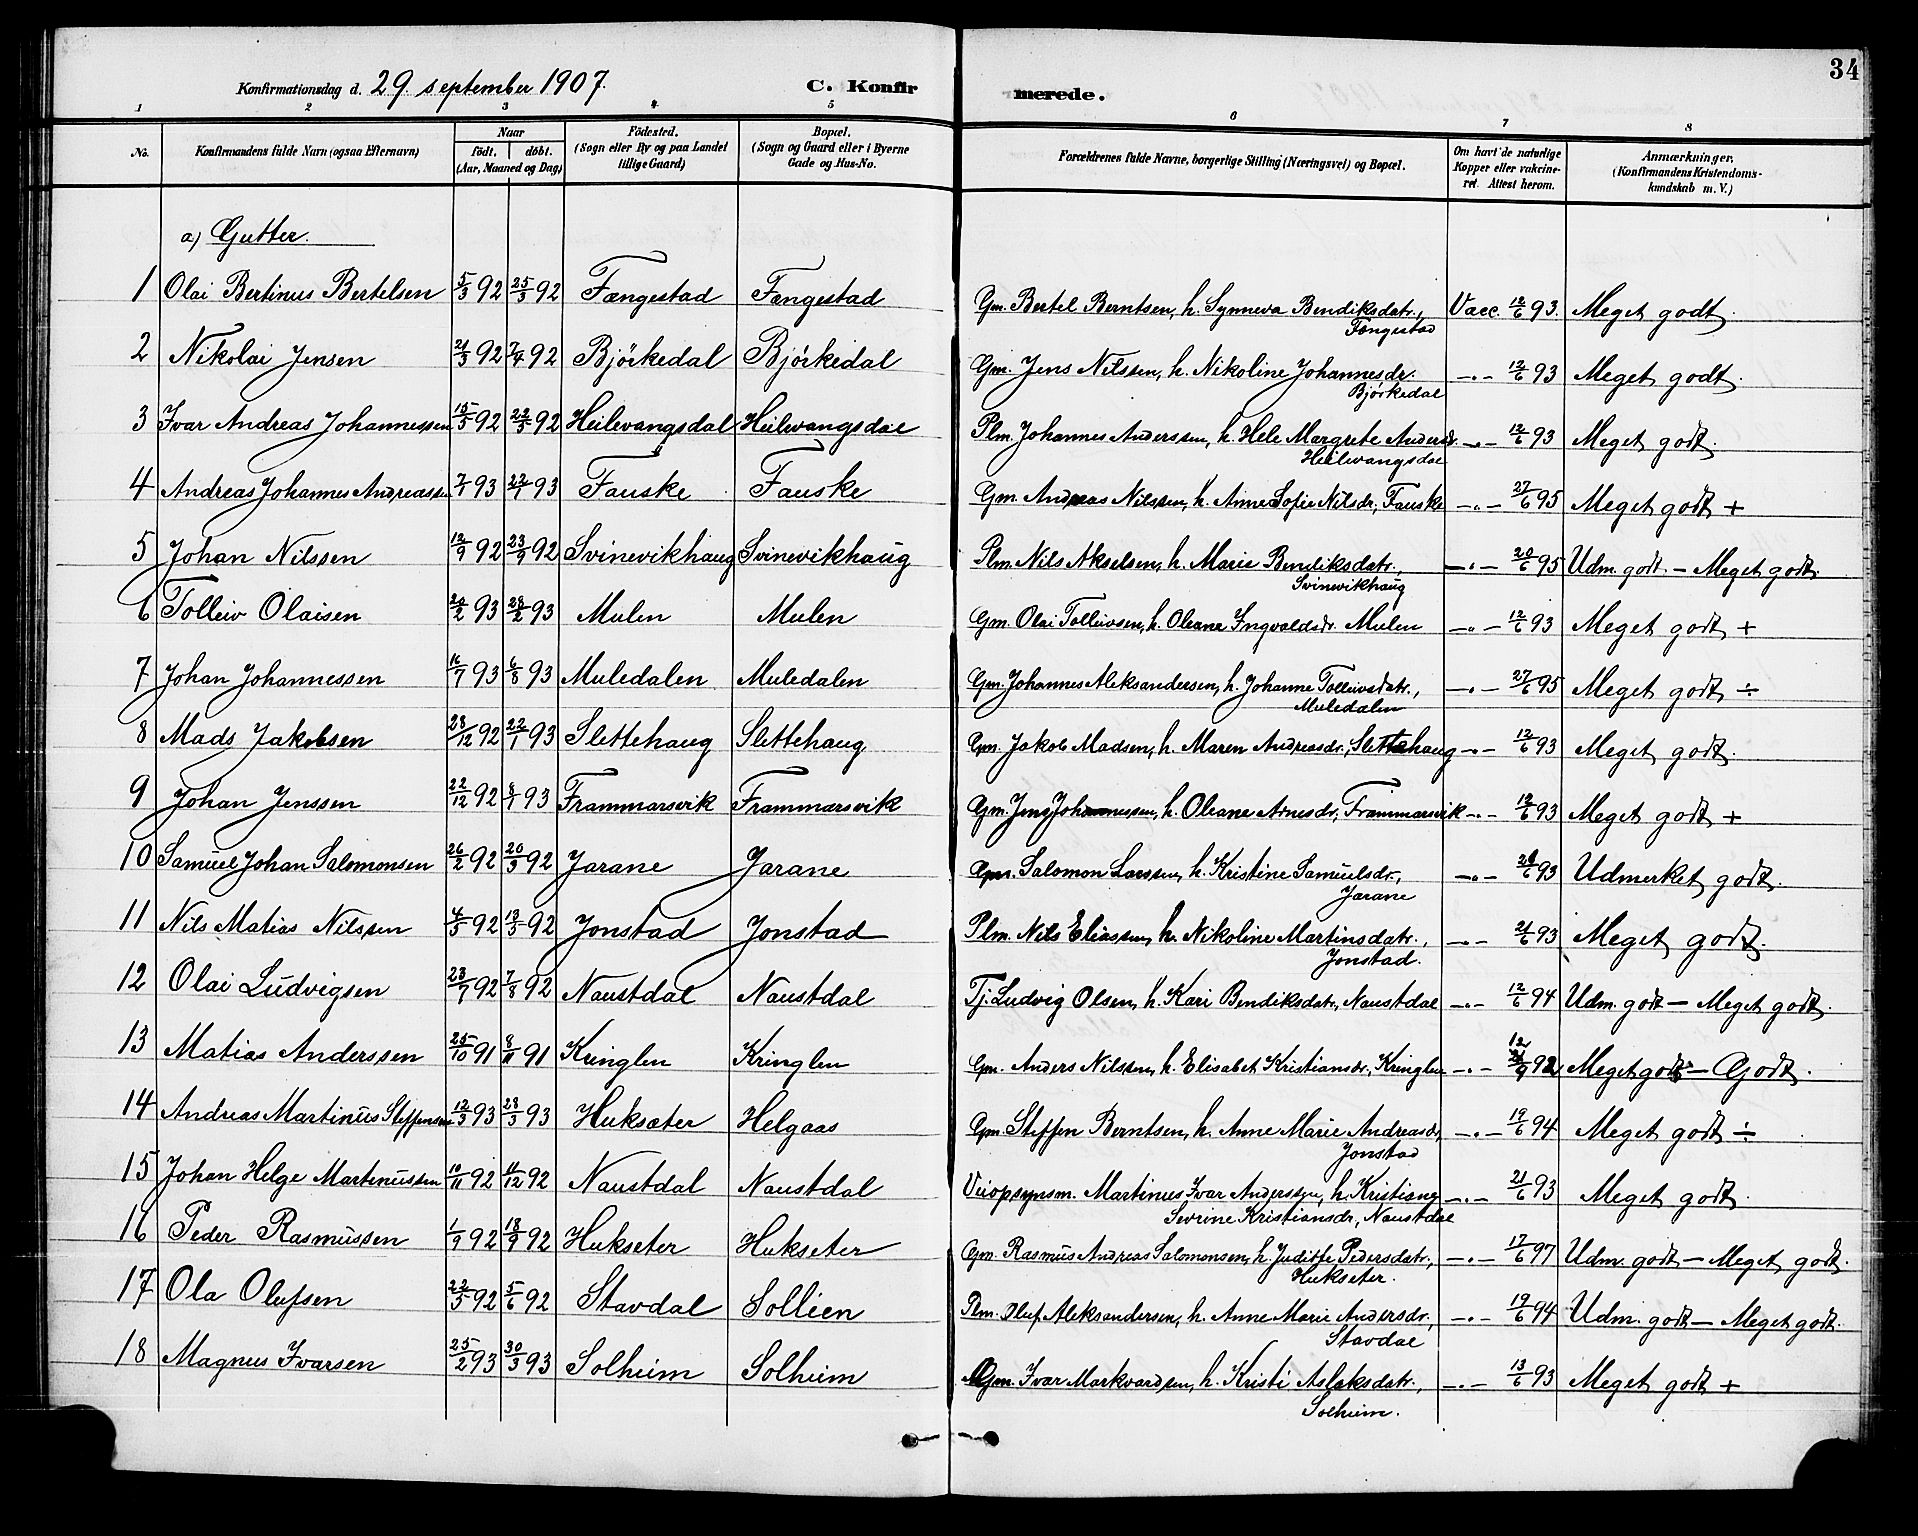 34
Konfirmationsdag d. 29. september 1907. C. Konfirmerede.
1 2 3 4 5 6 7 8
No. Konfirmandens fulde Navn (ogsaa Efternavn) Naar født, døbt. (Aar, Maaned og Dag) Fødested. (Sogn eller By og paa Landet tillige Gaard) Bopæl. (Sogn og Gaard eller i Byerne Gade og Hus-No. Forældrenes fulde Navne, borgerlige Stilling (Næringsvei) og Bopæl. Om havt de naturlige Kopper eller vakcineret. Attest herom. Anmærkninger. (Konfirmandens Kristendomskundskab m. V.)
a) Gutter.
1 Olai Bertinus Bertelsen 5/3 92 25/3 92 Fængestad Fængestad Gm. Bertel Berntsen, h. Synneva Bendiksdatr., Fængestad Vacc. 12/6 93. Meget godt.
2 Nikolai Jensen 21/3 92 7/4 92 Bjørkedal Bjørkedal Gm. Jens Nilssen, h. Nikoline Johannesdr. Bjørkedal -"- 12/6 93 Meget godt.
3 Ivar Andreas Johannessen 15/5 92 22/5 92 Heilevangsdal Heilevangsdal Plm. Johannes Anderssen, h. Hele Margrete Andersdr. Heilevangsdal -"- 12/6 93 Meget godt.
4 Andreas Johannes Andreassen 7/1 93 22/1 93 Fauske Fauske Gm. Andreas Nilssen, h. Anne Sofie Nilsdr., Fauske -"- 27/6 95 Meget godt +
5 Johan Nilssen 12/9 92 23/9 92 Svinevikhaug Svinevikhaug Plm. Nils Akselsen, h. Marie Bendiksdatr., Svinevikhaug -"- 20/6 95 Udm. godt. - Meget godt.
6 Tolleiv Olaisen 2/2 93 28/2 93 Mulen Mulen Gm. Olai Tolleivsen, h. Oleane Ingvaldsdr. Mulen -"- 12/6 93 Meget godt +
7 Johan Johannessen 16/7 93 6/8 93 Muledalen Muledalen Gm. Johannes Aleksandersen, h. Johanne Tolleivsdatr., Muledalen -"- 27/6 95 Meget godt ÷
8 Mads Jakobsen 28/12 92 22/1 93 Slettehaug Slettehaug Gm. Jakob Madsen, h. Maren Andreasdr., Slettehaug -"- 12/6 93 Meget godt.
9 Johan Jenssen 22/12 92 8/1 93 Frammarsvik Frammarsvik Gm. Jens Johannessen, h. Oleane Arnesdr., Frammarsvik -"- 12/6 93 Meget godt +
10 Samuel Johan Salomonsen 26/2 92 20/3 92 Jarane Jarane Gm. Salomon Larssen, h. Kristine Samuelsdr., Jarane -"- 93 Udmerket godt.
11 Nils Matias Nilssen 4/5 92 13/5 92 Jonstad Jonstad Plm. Nils Eliassen, h. Nikoline Martinsdatr., Jonstad. -"- 21/6 93 Meget godt.
12 Olai Ludvigsen 23/7 92 7/8 92 Naustdal Naustdal Tj. Ludvig Olsen, h. Kari Bendiksdatr., Naustdal -"- 12/6 94 Udm. godt - Meget godt.
13 Matias Anderssen 25/10 91 8/11 91 Kringlen Kringlen Gm. Anders Nilssen, h. Elisabet Kristiansdr., Kringlen -"- 92 Meget godt - Godt.
14 Andreas Martinus Steffensen 12/3 93 28/3 93 Huksæter Helgaas Gm. Steffen Berntsen, h. Anne Marie Andreasdr., Jonstad -"- 19/6 94 Meget godt ÷
15 Johan Helge Martinussen 10/11 92 11/12 92 Naustdal Naustdal Veiopsynsm. Martinus Ivar Anderssen, h. Kristiane Sevrine Kristiansdr., Naustdal -"- 21/6 93 Meget godt.
16 Peder Rasmussen 1/9 92 18/9 92 Hukseter Hukseter Gm. Rasmus Andreas Salomonsen, h. Judithe Pedersdatr., Hukseter. -"- 17/6 97 Udm. godt - Meget godt.
17 Ola Olufsen 22/5 92 5/6 92 Stavdal Sollien Plm. Oluf Aleksandersen, h. Anne Marie Andersdr., Stavdal -"- 19/6 94 Udm. godt - Meget godt.
18 Magnus Ivarsen 25/2 93 30/3 93 Solheim Solheim Gm. Ivar Markvardsen, h. Kristi Aslaksdatr., Solheim. -"- 13/6 93 Meget godt +